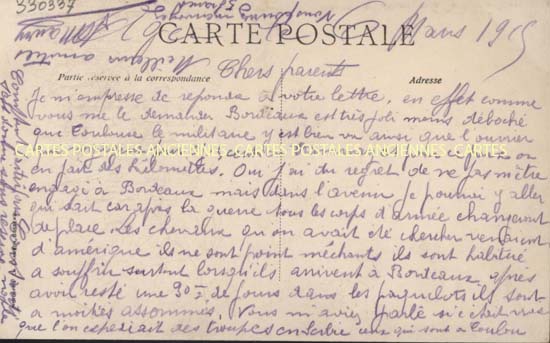 330337
Mars 1915
CARTE POSTALE
Partie réservée à la correspondance
Adresse
Meilleures amitiés
Chers parents
Je m'empresse de reponda à votre lettre, en effet comme
vous me le demander Bordeaux est très joli moins deboché
que Toulouse le militaire y est bien vu ainsi que l'ouvrier
CARTES POSTALES ANCIENNES CARTES POSTALES ANCIENNES CARTES POSTALES ANCIENNES
on
en fait des kilometres. Oui j'ai du regret de ne pas m'être
engagé à Bordeaux mais dans l'avenir je pourrai y aller
qui sait car apis la guerre tous les corps d'armée changeront
de place. Les chevaux qu'on avait été chercher venaient
d'amérique ils ne sont point méchants ils sont habitué
a souffrir surtout lorsqu'ils arrivent à Bordeaux après
avoir resté une 30ne de jours dans les paquebots ils sont
a moitiés assommés. Vous m'aviez parlé si c'était vrai
que l'on expediait des troupes en Serbie ceux qui sont a Toulon